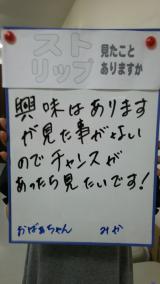 スト
リップ
見たこと
ありますか
興味はあります
が見た事がない
のでチャンスが
あったら見たいです!
おばあちゃん みか